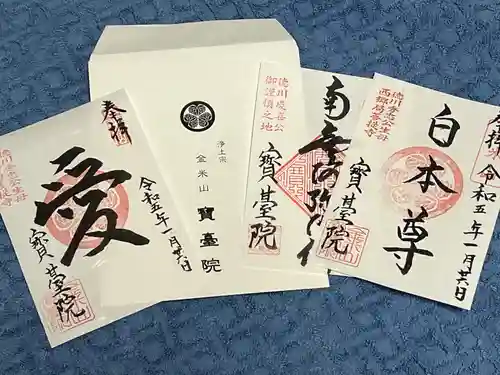 奉拝
愛
令和五年一月廿六日
寶臺院
浄土宗
金米山
寶臺院
徳川慶喜公
御謹慎之地
寶臺院
徳川秀忠公生母
西郷局菩提寺
白本尊
令和五年一月廿六日
寶臺院